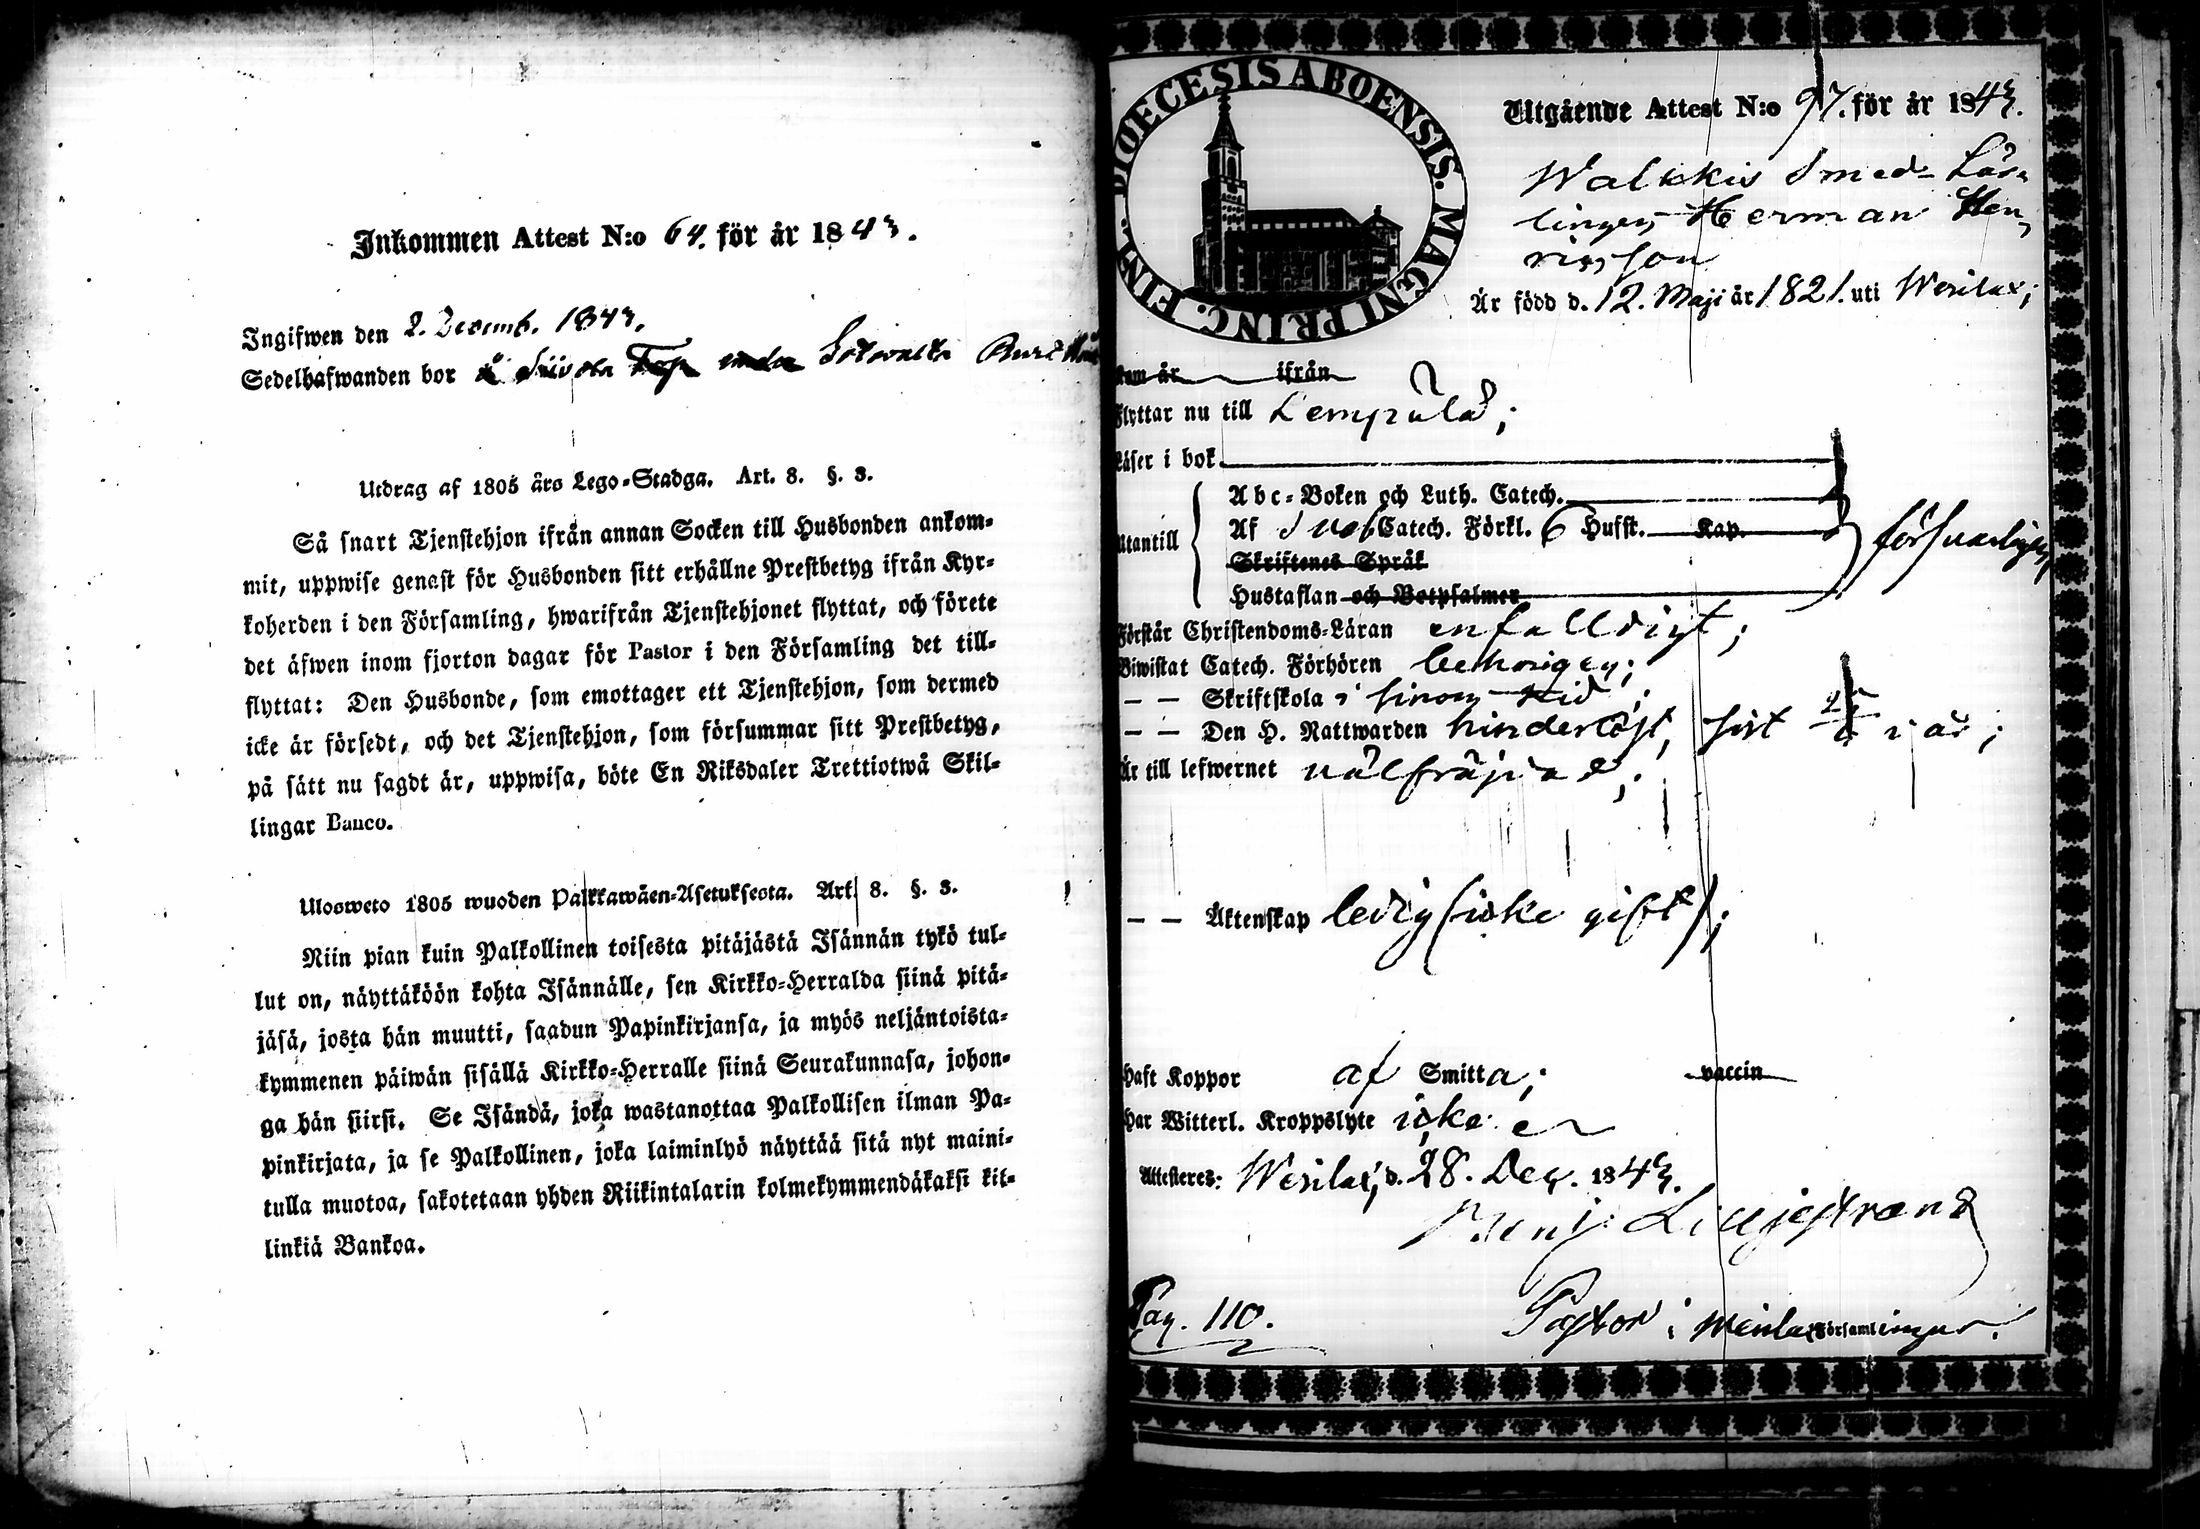 Inkommen Attest N:o 64. för år 1843.
Ingifwen den 2. Decemb. 1843.
Sedelhafwanden bor å
Utdrag af 1805 års Lego-Stadga. Art. 8. §. 3.
Så snart Tjenstehjon ifrån annan Socken till Husbonden ankom-
mit, uppwise genast för Husbonden sitt erhållne Prestbetyg ifrån Kyr-
koherden i den Församling, hwarifrån Tjenstehjonet flyttat, och förete
det äfwen inom fjorton dagar för Pastor i den Församling det till-
flyttat: Den Husbonde, som emottager ett Tjenstehjon, som dermed
icke är försedt, och det Tjenstehjon, som försummar sitt Prestbetyg,
på sätt nu sagdt är, uppwisa, böte En Riksdaler Trettiotwå Skil-
lingar Banco.
Ulosweto 1805 wuoden Palkkawäen-Asetuksesta. Art. 8. §. 3.
Niin pian kuin Palkollinen toisesta pitäjästä Isännän tykö tul-
lut on, näyttäköön kohta Isännälle, sen Kirkko-Herralda siinä pitä-
jäsä, josta hän muutti, saadun Papinkirjansa, ja myös neljäntoista-
kymmenen päiwän sisällä Kirkko-Herralle siinä Seurakunnasa, johon-
ga hän siirsi. Se Isändä, joka wastanottaa Palkollisen ilman Pa-
pinkirjata, ja se Palkollinen, joka laiminlyö näyttää sitä nyt maini-
tulla muotoa, sakotetaan yhden Riikintalarin kolmekymmendäkaksi kil-
linkiä Bankoa.
DIOECESIS ABOENSIS. MAGNI PRINC. FINL.
Utgående Attest N:o 97. för år 1843.
Walkkis Smed-Lär-
lingen Herman Hen-
ricsson
Är född d. 12. Maji år 1821. uti Wesilax;
Kom år ifrån
Flyttar nu till Lempälä;
Läser i bok
Utantill
Abc-Boken och Luth. Catech.
Af Sveb Catech. Förkl. 6 Hufst. Kap.
Skriftenes Språk
Hustaflan och Botpsalmer
försvarligen
Förstår Christendoms-Läran enfalldigt;
Biwistat Catech. Förhören behörigen;
— — Skriftskola i sinom tid;
— — Den H. Nattwarden hinderlöst, sist i år;
Är till lefwernet välfräjdad;
— — Äktenskap ledig (icke gift);
Haft Koppor af Smitta; vaccin
Har Witterl. Kroppslyte icke
Attesteres: Wesilax, d. 28. Dec. 1843.
Benj. Liljestrand
Pag. 110.
Pastor i Wesilax Församlingar.